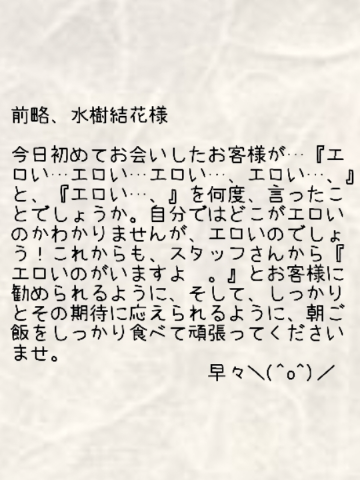 前略、水樹結花様
今日初めてお会いしたお客様が…『エ
ロい…エロい…エロい…、エロい…、』
と、『エロい…、』を何度、言ったこ
とでしょうか。自分ではどこがエロい
のかわかりませんが、エロいのでしょ
う！これからも、スタッフさんから『
エロいのがいますよ　。』とお客様に
勧められるように、そして、しっかり
とその期待に応えられるように、朝ご
飯をしっかり食べて頑張ってください
ませ。
早々＼(^o^)／